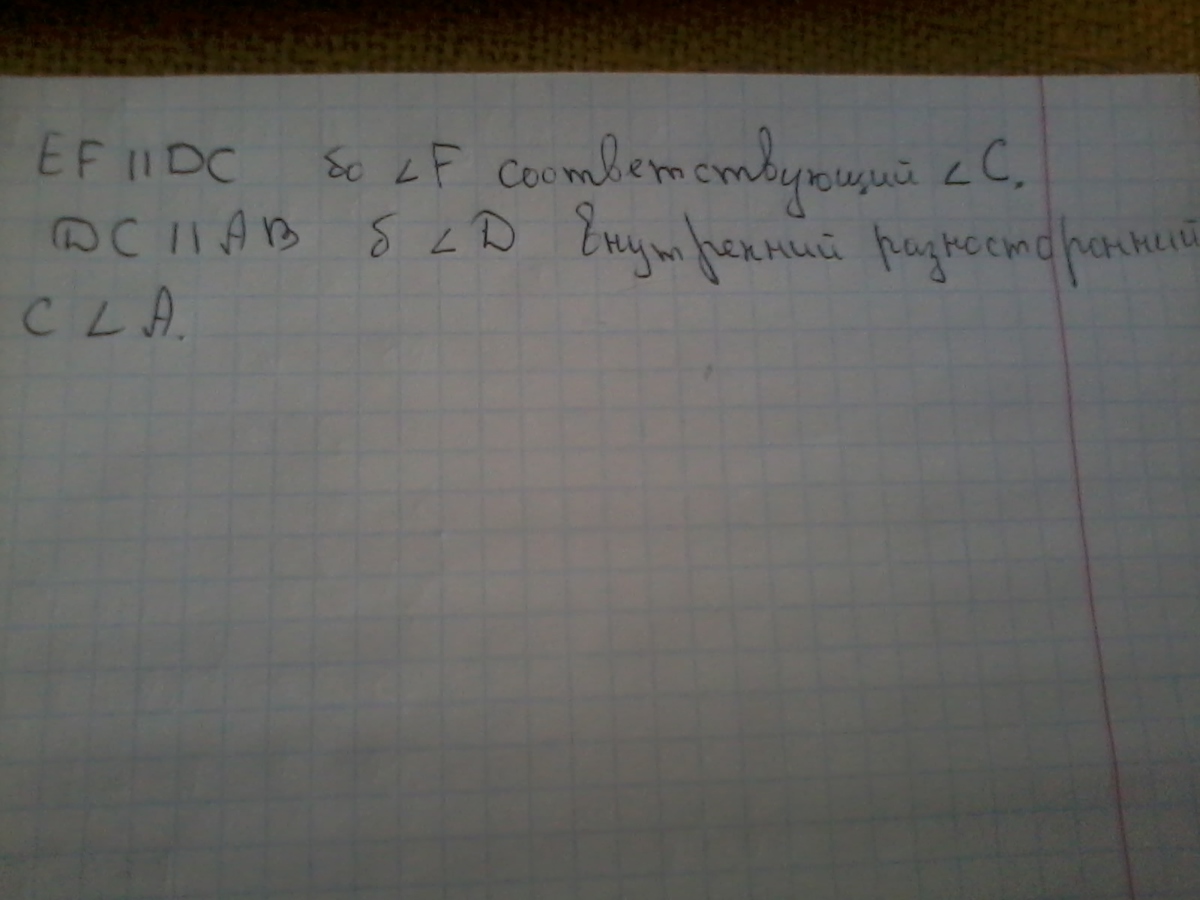 EF || DC бо ∠F соответствующий ∠C.
DC || AB б ∠D внутренний разносторонний
C ∠ A.